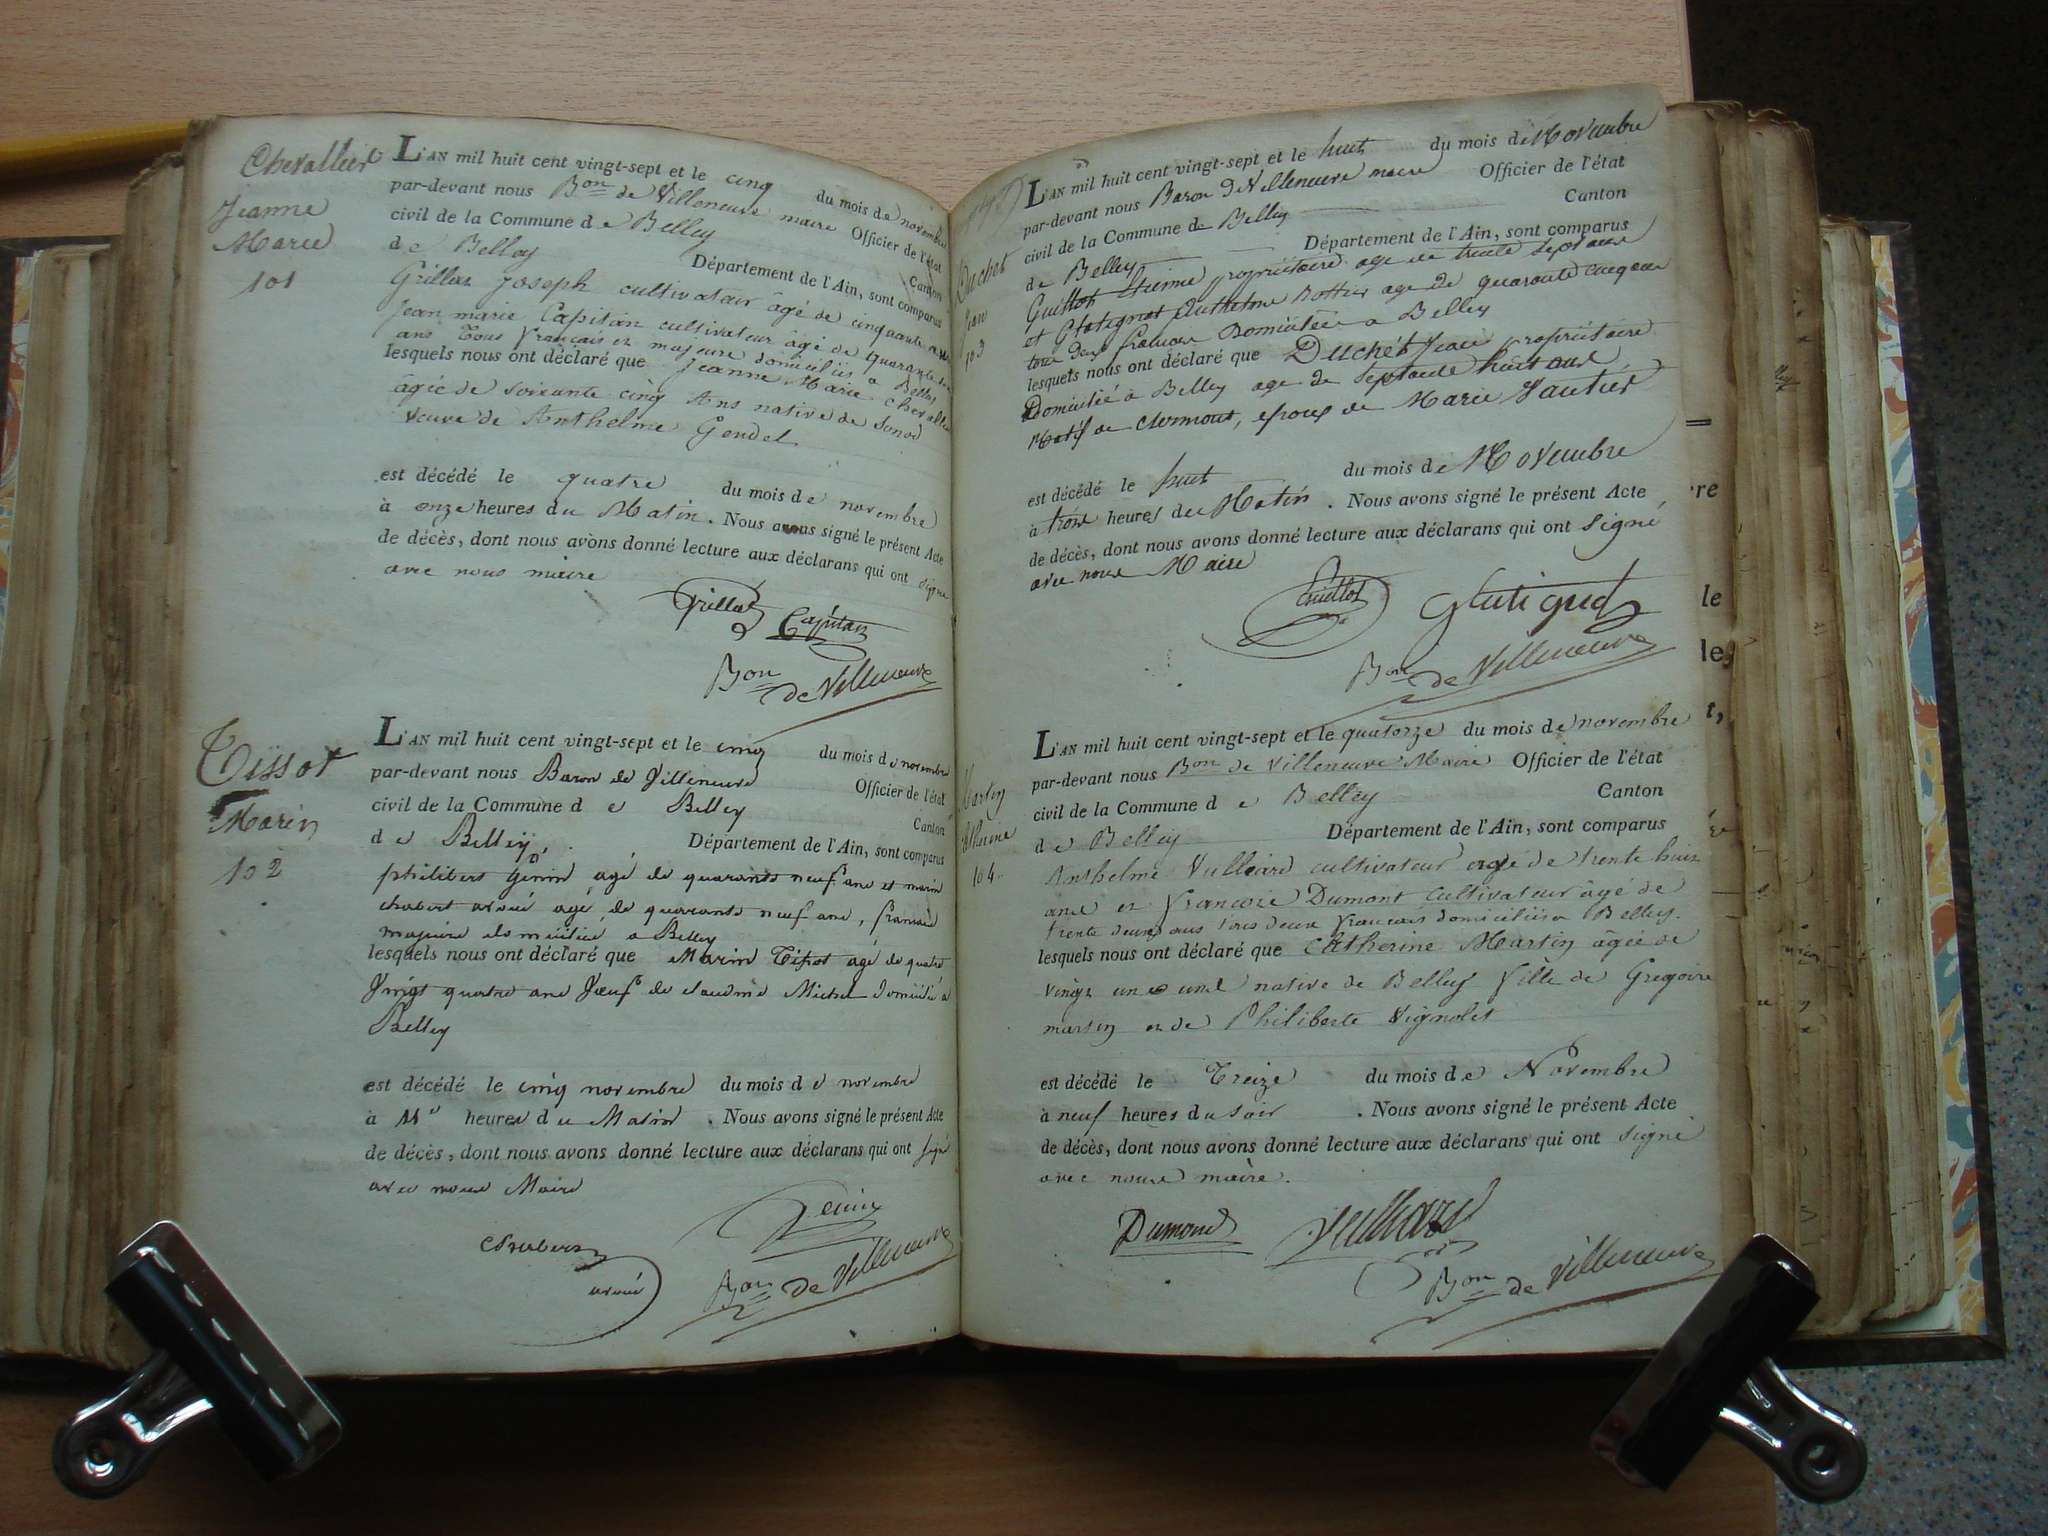 Chevallier
Jeanne
Marie
101
L'AN mil huit cent vingt-sept et le cinq du mois de novembre
par-devant nous Bon de Villeneuve maire Officier de l'état
civil de la Commune de Belley Canton
de Belley Département de l'Ain, sont comparus
Grillon Joseph cultivateur âgé de cinquante
Jean marie Capitan cultivateur âgé de quarante
ans Tous français et majeurs domiciliés a Belley
lesquels nous ont déclaré que Jeanne Marie Chevallier
âgée de soixante cinq Ans native de
Veuve de Anthelme Gendel
est décédé le quatre du mois de novembre
à onze heures du Matin. Nous avons signé le présent Acte
de décès, dont nous avons donné lecture aux déclarans qui ont signé
avec nous maire
Capitan
Bon de Villeneuve
Tissot
Marin
102
L'AN mil huit cent vingt-sept et le cinq du mois de novembre
par-devant nous Baron de Villeneuve Officier de l'état
civil de la Commune de Belley Canton
de Belley, Département de l'Ain, sont comparus
philibert Genin âgé de quarante neuf ans et marin
chabert avoué âgé de quarante neuf ans, français
majeurs domiciliés a Belley
lesquels nous ont déclaré que Marin Tissot âgé de quatre
Vingt quatre ans Veuf de Claudine Michel domicilié a
Belley
est décédé le cinq novembre du mois de novembre
à heures du Matin. Nous avons signé le présent Acte
de décès, dont nous avons donné lecture aux déclarans qui ont signé
avec nous Maire
Genin
Chabert
avoué
Bon de Villeneuve
Duchet
Jean
103
L'AN mil huit cent vingt-sept et le huit du mois de Novembre
par-devant nous Baron de Villeneuve maire Officier de l'état
civil de la Commune de Belley Canton
de Belley Département de l'Ain, sont comparus
Guillot Etienne propriétaire age de trente sept ans
et Glatignat Anthelme Bottier age de quarante cinq ans
tous deux français Domiciliés a Belley
lesquels nous ont déclaré que Duchet Jean propriétaire
Domicilié à Belley age de Septante huit ans
Natif de Clermont, epoux de Marie Vautier
est décédé le huit du mois de Novembre
à trois heures du Matin. Nous avons signé le présent Acte
de décès, dont nous avons donné lecture aux déclarans qui ont signé
avec nous Maire
Guillot
Bon de Villeneuve
Martin
Catherine
104
L'AN mil huit cent vingt-sept et le quatorze du mois de novembre
par-devant nous Bon de Villeneuve Maire Officier de l'état
civil de la Commune de Belley Canton
de Belley Département de l'Ain, sont comparus
Anthelme Vulliard cultivateur agé de trente huit
ans et Francois Dumont cultivateur âgé de
trente deux ans tous deux français domiciliés a Belley
lesquels nous ont déclaré que Catherine Martin âgée de
vingt un ans native de Belley fille de Gregoire
martin et de Philiberte Vignolet
est décédé le Treize du mois de Novembre
à neuf heures du soir. Nous avons signé le présent Acte
de décès, dont nous avons donné lecture aux déclarans qui ont signé
avec nous maire.
Dumond
Bon de Villeneuve